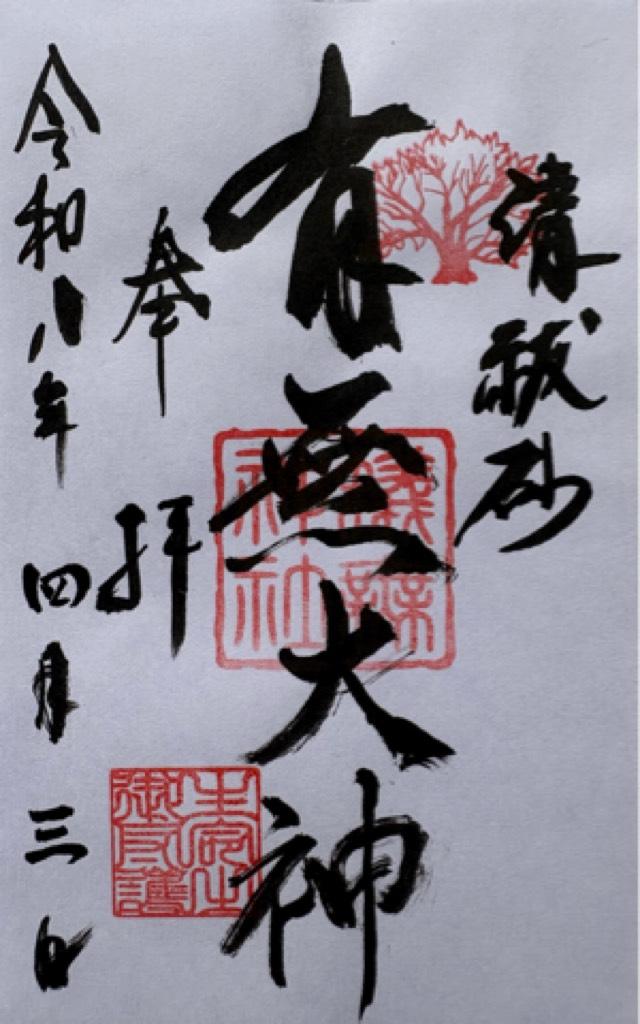 清祓砂
有無大神
神社
奉拝
令和八年四月三日